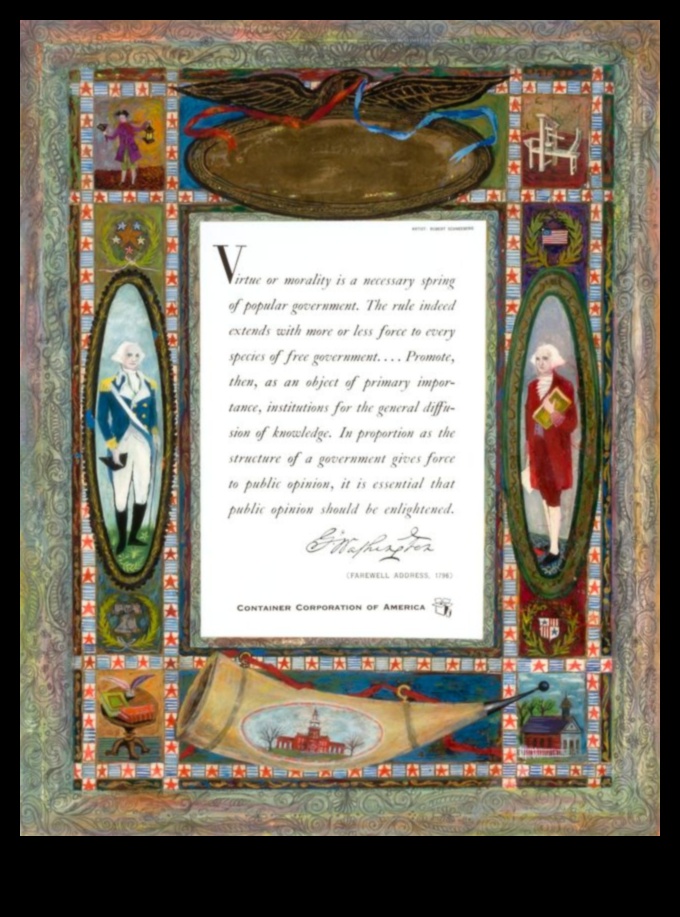 ARTIST: ROBERT SCHNEEBERG
Virtue or morality is a necessary spring
of popular government. The rule indeed
extends with more or less force to every
species of free government.... Promote,
then, as an object of primary impor-
tance, institutions for the general diffu-
sion of knowledge. In proportion as the
structure of a government gives force
to public opinion, it is essential that
public opinion should be enlightened.
G. Washington
(FAREWELL ADDRESS, 1796)
CONTAINER CORPORATION OF AMERICA